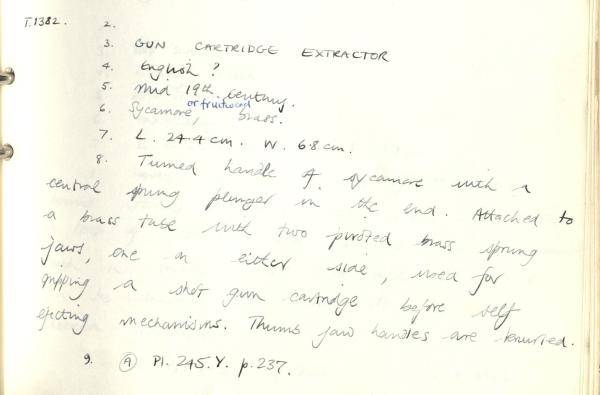 T.1382. 2.
3. GUN CARTRIDGE EXTRACTOR
4. English ?
5. Mid 19th. century.
6. Sycamore, or fruitwood brass.
7. L. 24.4 cm. W. 6.8 cm.
8. Turned handle of sycamore with a
central sprung plunger in the end. Attached to
a brass tube with two pivoted brass sprung
jaws, one on either side, used for
gripping a shot gun cartridge before self
ejecting mechanisms. Thumb jaw handles are knurled.
9. (A) Pl. 245.Y. p.237.